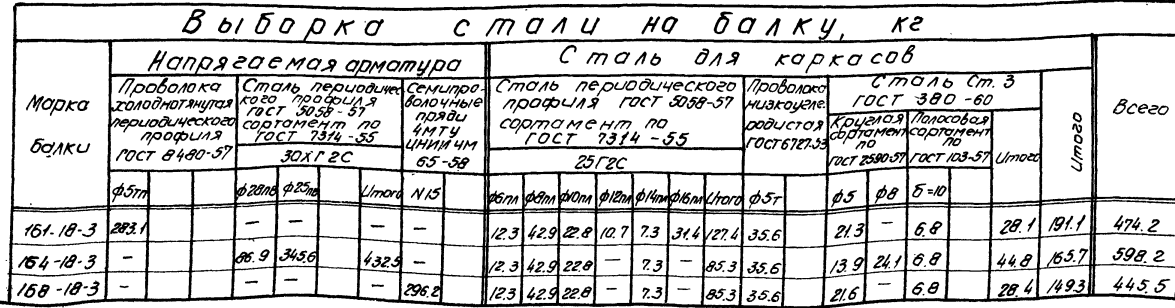 Выборка стали на балку, кг
Марка балки
Напрягаемая арматура
Сталь для каркасов
Итого
Всего
Проволока холоднотянутая периодического профиля ГОСТ 8480-57
Сталь периодического профиля ГОСТ 5058-57 сортамент по ГОСТ 7314-55
Семипроволочные пряди ЧМТУ ЦНИИЧМ 65-58
Сталь периодического профиля ГОСТ 5058-57 сортамент по ГОСТ 7314-55
Проволока низкоуглеродистая ГОСТ 6727-53
Сталь Ст. 3 ГОСТ 380-60
Круглая сортамент по ГОСТ 2590-57
Полосовая сортамент по ГОСТ 103-57
Итого
30ХГ2С
25Г2С
ф5тп ф28пв ф25пв Итого N15 ф6пл ф8пл ф10пл ф12пл ф14пл ф16пл Итого ф5т ф5 ф8 δ=10
161-18-3 283.1 – – – – 12.3 42.9 22.8 10.7 7.3 31.4 127.4 35.6 21.3 – 6.8 28.1 191.1 474.2
164-18-3 – 86.9 345.6 432.5 – 12.3 42.9 22.8 – 7.3 – 85.3 35.6 13.9 24.1 6.8 44.8 165.7 598.2
168-18-3 – – – – 296.2 12.3 42.9 22.8 – 7.3 – 85.3 35.6 21.6 – 6.8 28.4 149.3 445.5